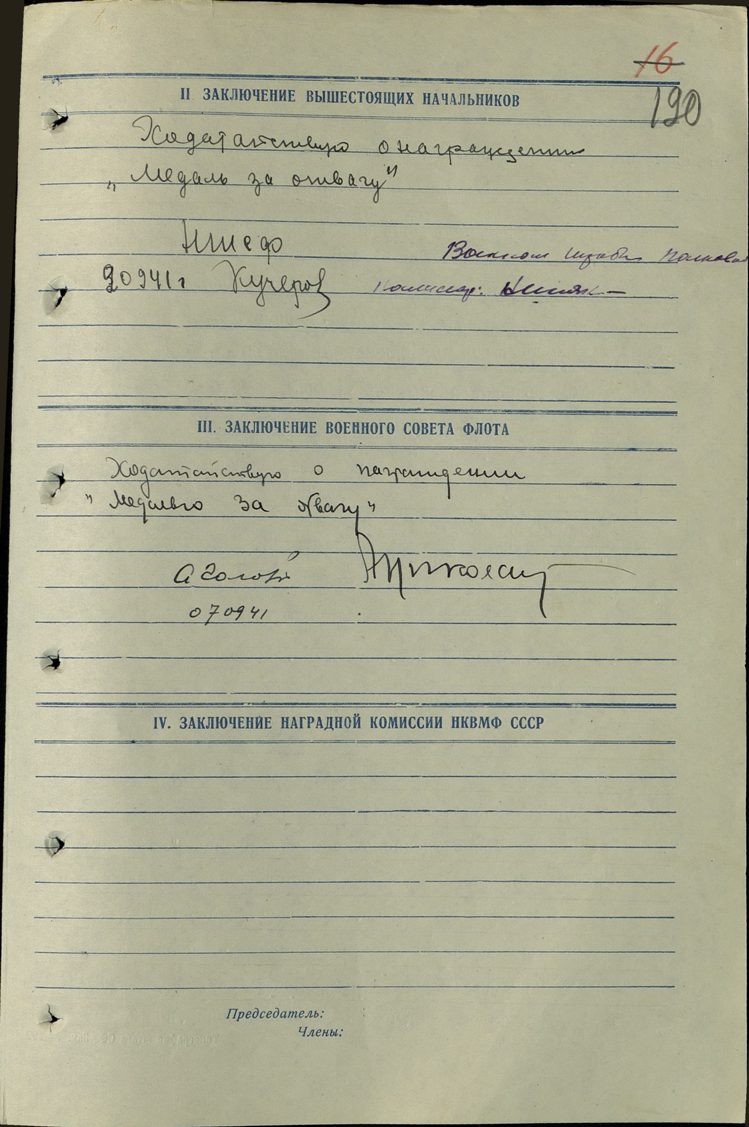 16
190
II ЗАКЛЮЧЕНИЕ ВЫШЕСТОЯЩИХ НАЧАЛЬНИКОВ
Ходатайствую о награждении
„Медаль за отвагу"
НШСФ
Кучеров
III. ЗАКЛЮЧЕНИЕ ВОЕННОГО СОВЕТА ФЛОТА
Ходатайствую о награждении
"Медалью за отвагу"
070941
IV. ЗАКЛЮЧЕНИЕ НАГРАДНОЙ КОМИССИИ НКВМФ СССР
Председатель:
Члены: